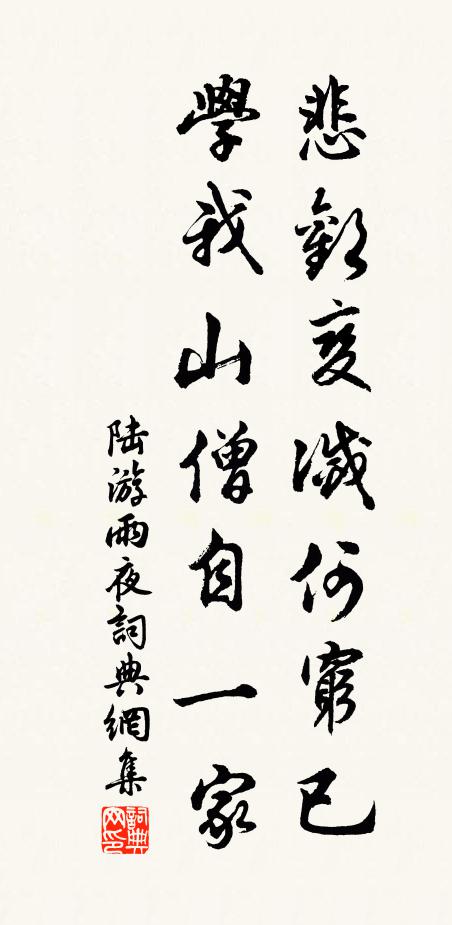 悲歡變滅何窮已
學我山僧自一家
陸游雨夜詞典網集
詞典网印